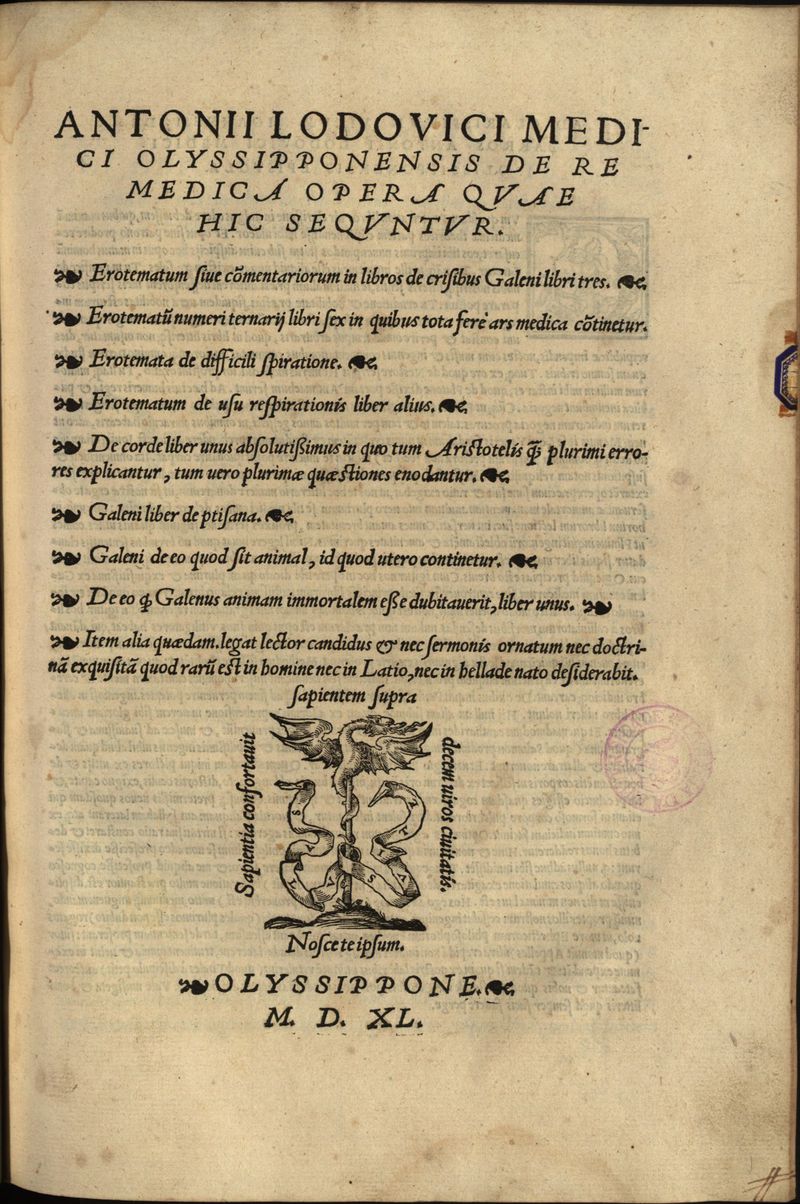 ANTONII LODOVICI MEDI-
CI OLYSSIPPONENSIS DE RE
MEDICA OPERA QVAE
HIC SEQVNTVR.
Erotematum ſiue cõmentariorum in libros de criſibus Galeni libri tres.
Erotematũ numeri ternarij libri ſex in quibus tota ferè ars medica cõtinetur.
Erotemata de difficili ſpiratione.
Erotematum de uſu reſpirationis liber alius.
De corde liber unus abſolutißimus in quo tum Ariſtotelis q̃ plurimi erro-
res explicantur, tum uero plurimæ quæſtiones enodantur.
Galeni liber de ptiſana.
Galeni de eo quod ſit animal, id quod utero continetur.
De eo ꝙ Galenus animam immortalem eße dubitauerit, liber unus.
Item alia quædam. legat lector candidus & nec ſermonis ornatum nec doctri-
nã exquiſitã quod rarũ eſt in homine nec in Latio, nec in hellade nato deſiderabit.
ſapientem ſupra
Sapientia confortauit
decem uiros ciuitatis.
Noſce te ipſum.
OLYSSIPPONE.
M. D. XL.